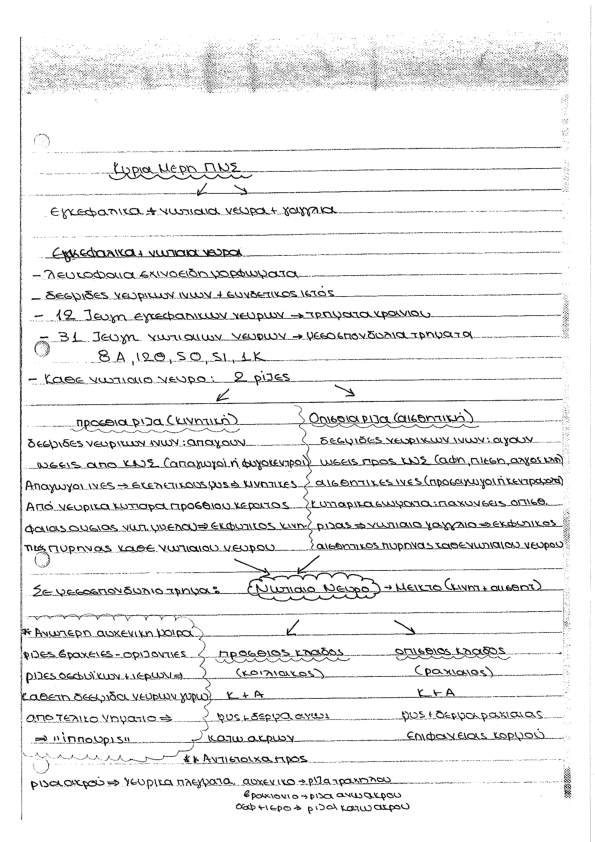 Κυρια Μερη ΠΝΣ
Εγκεφαλικα + νωτιαια νευρα + γαγγλια
Εγκεφαλικα + νωτιαια νευρα
- Λευκοφαια σχινοειδη μορφωματα
- δεσμιδες νευρικων ινων + συνδετικος ιστός
- 12 ζευγη εγκεφαλικων νευρων → τρηματα κρανιου
- 31 ζευγη νωτιαιων νευρων → μεσοσπονδυλια τρηματα
8 Α, 12Θ, 5Ο, 5Ι, 1Κ
- Καθε νωτιαιο νευρο: 2 ριζες
προσθια ριζα (κινητική)
δεσμιδες νευρικων ινων: απαγουν
ωσεις απο ΚΝΣ (απαγωγοι ή φυγοκεντροι)
Απαγωγοι ινες → σκελετικους μυς → κινητικες
Από νευρικα κυτταρα προσθιου κερατος
φαιας ουσιας νωτ. μυελου ⇒ εκφυτικος κινη-
τικος πυρηνας καθε νωτιαιου νευρου
Οπισθια ριζα (αισθητική)
δεσμιδες νευρικων ινων: αγουν
ωσεις προς ΚΝΣ (αφη, πιεση, αλγος κλπ)
αισθητικες ινες (προσαγωγοι ή κεντρομολοι)
κυτταρικα σωματα: παχυνσεις οπισθ.
ριζας → νωτιαιο γαγγλιο ⇒ εκφυτικος
αισθητικος πυρηνας καθε νωτιαιου νευρου
Σε μεσοσπονδυλιο τρημα: Νωτιαιο Νευρο → Μεικτο (κινητ + αισθητ)
* Ανωτερη αυχενικη μοιρα
ριζες βραχειες - οριζοντιες
ριζες οσφυϊκων + ιερων ⇒
καθετη δεσμιδα νευρων γυρω
απο τελικο νηματιο ⇒
⇒ "ιππουρις"
προσθιος κλαδος
(κοιλιακος)
Κ + Α
μυς + δερμα ανω +
κατω ακρων
οπισθιος κλαδος
(ραχιαιος)
Κ + Α
μυς + δερμα ραχιαιας
επιφανειας κορμού
** Αντιστοιχα προς
ριζα ακρού ⇒ νευρικα πλεγματα αυχενικο → ριζα τραχηλου
βραχιονιο → ριζα ανω ακρου
οσφ + ιερο → ριζα κατω ακρου